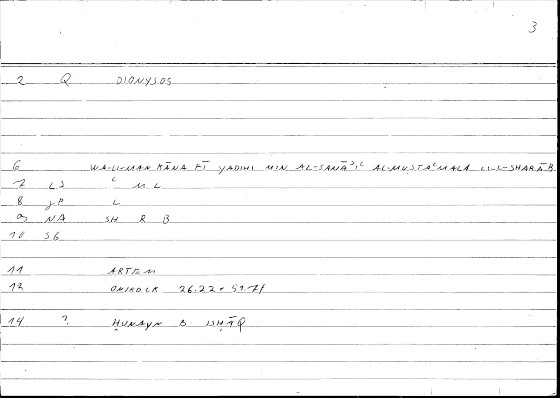 3
2 Q DIONYSOS
6 WA-LI-MAN KĀNA FĪ YADIHI MIN AL-SANĀʾIʿ AL-MUSTAʿMALA LI-L-SHARĀB
7 LS ʿ M L
8 JP L
9 NA SH R B
10 SG
11 ARTEM
12 ONIROCR 26.22 =
14 ? ḤUNAYN B ISḤĀQ